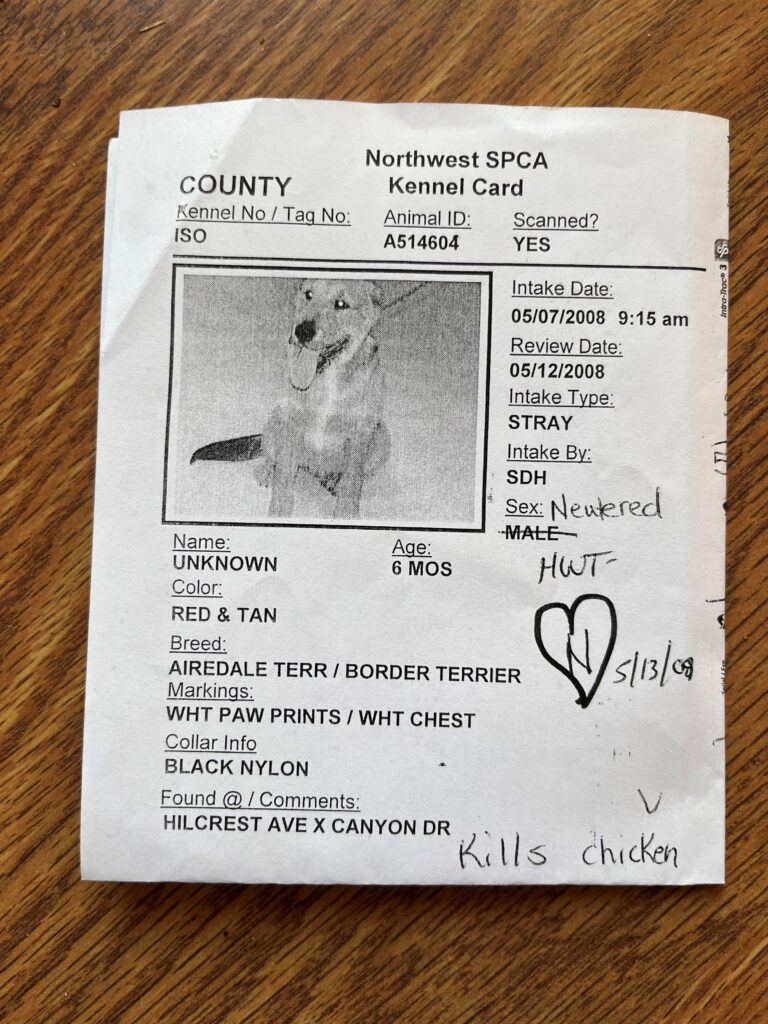 Northwest SPCA
COUNTY Kennel Card
Kennel No / Tag No: Animal ID: Scanned?
ISO A514604 YES
Intake Date:
05/07/2008 9:15 am
Review Date:
05/12/2008
Intake Type:
STRAY
Intake By:
SDH
Sex: Neutered
MALE
HWT-
N 5/13/08
Name: Age:
UNKNOWN 6 MOS
Color:
RED & TAN
Breed:
AIREDALE TERR / BORDER TERRIER
Markings:
WHT PAW PRINTS / WHT CHEST
Collar Info
BLACK NYLON
Found @ / Comments:
HILCREST AVE X CANYON DR
Kills chicken
Intra-Trac® 3